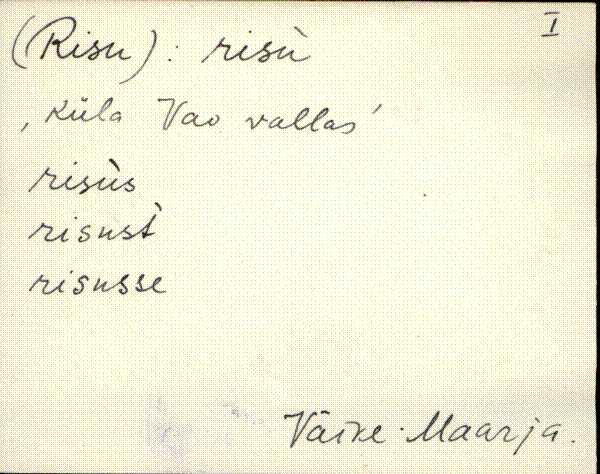 I
(Risu): risù
‚küla Vao vallas’
risùs
risust̀
risusse
Väike-Maarja.